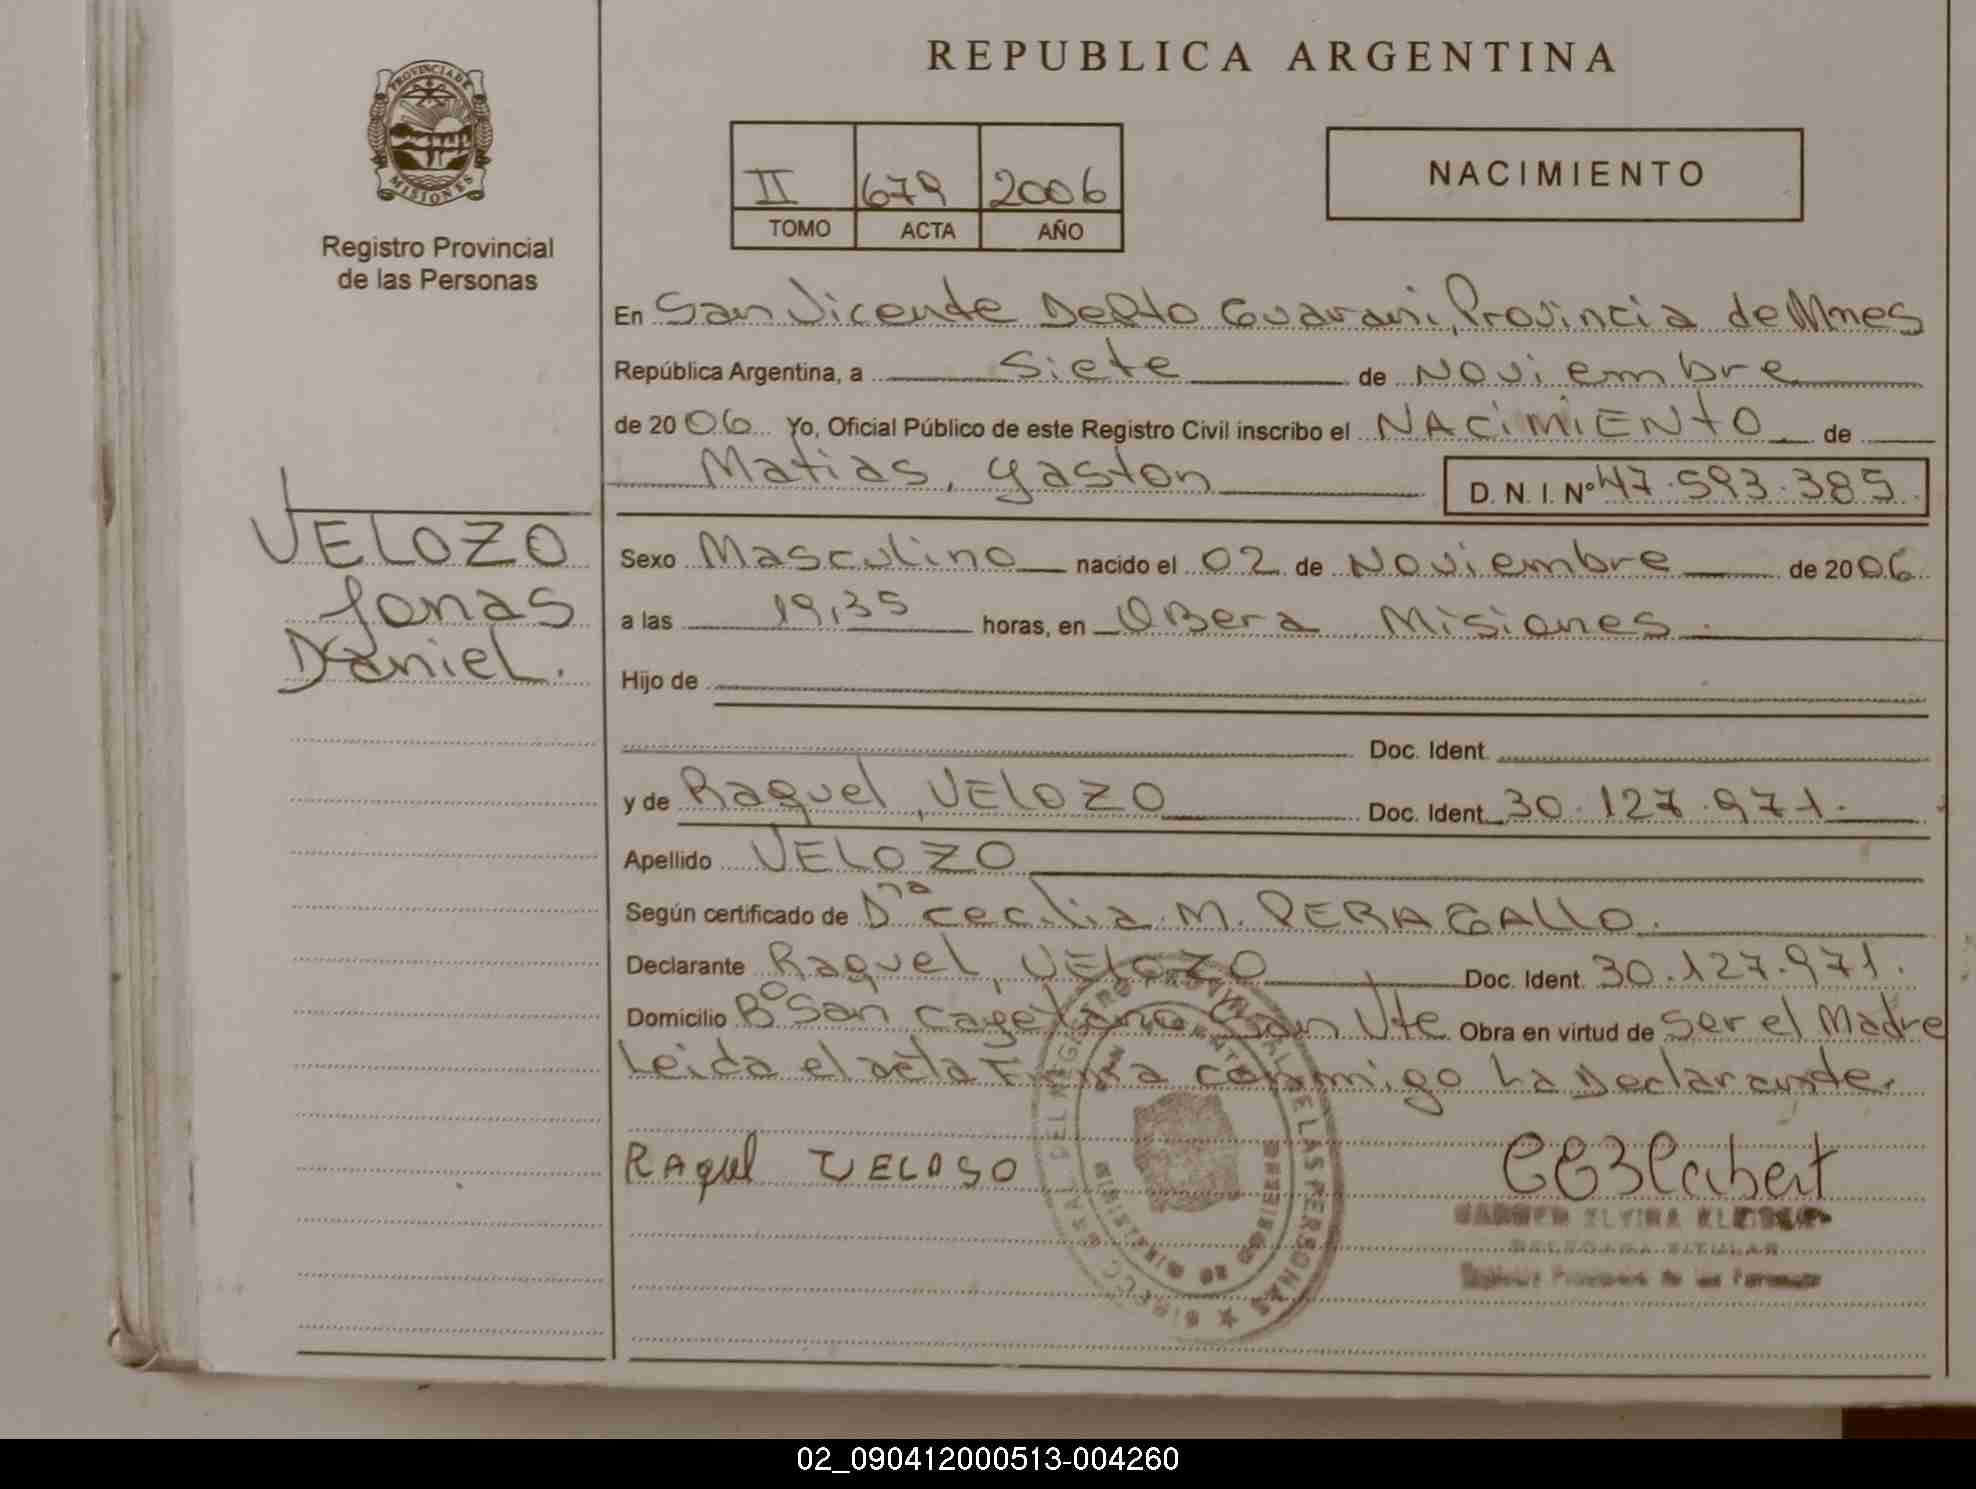 PROVINCIA DE
MISIONES
Registro Provincial
de las Personas
VELOZO
Jonas
Daniel.
REPUBLICA ARGENTINA
II 679 2006
TOMO ACTA AÑO
NACIMIENTO
En San Vicente Depto Guarani, Provincia de Mnes
República Argentina, a Siete de Noviembre
de 2006 Yo, Oficial Público de este Registro Civil inscribo el NACIMIENTO de
Matias, Gaston D. N. I. Nº 47.593.385
Sexo Masculino nacido el 02 de Noviembre de 2006
a las 19,35 horas, en Obera Misiones.
Hijo de
Doc. Ident.
y de Raquel, VELOZO Doc. Ident. 30.127.971.
Apellido VELOZO
Según certificado de Dra Cecilia M. PERAGALLO.
Declarante Raquel, VELOZO Doc. Ident. 30.127.971.
Domicilio Bº San Cayetano San Vte Obra en virtud de Ser el Madre
Leida el acta Firma conmigo La Declarante.
RAquel VELOSO
DIRECC. GRAL. DEL REGISTRO PROVINCIAL DE LAS PERSONAS
MINISTERIO DE GOBIERNO
DELEGADA TITULAR
Registro Provincial de las Personas
02_090412000513-004260